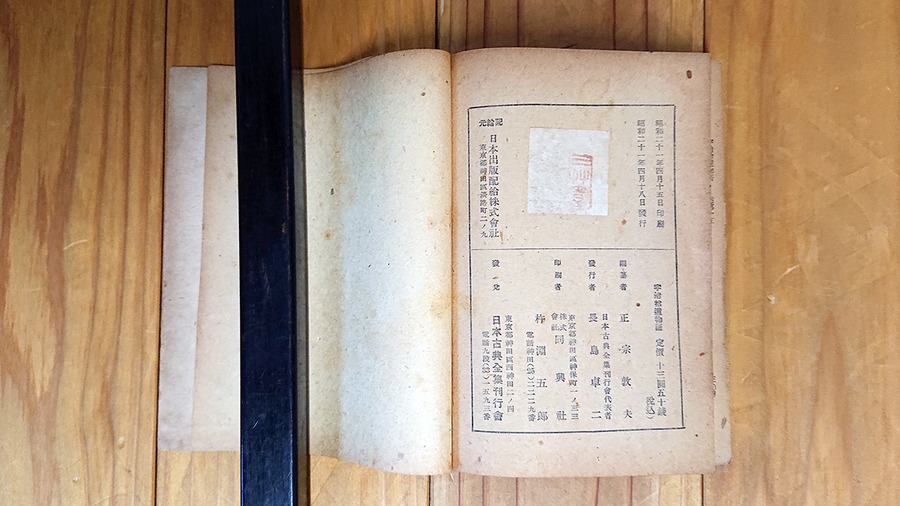 昭和二十一年四月十五日印刷
昭和二十一年四月十八日發行
配給元
日本出版配給株式會社
東京都神田區淡路町二ノ九
宇治拾遺物語 定價 十三圓五十錢
(税込)
編纂者 正宗敦夫
日本古典全集刊行會代表者
發行者 長島卓二
東京都神田區神保町一ノ三三
印刷者 株式會社 同興社
杵淵五郎
電話神田(25)二二二九番
發兌
東京都神田區西神田二ノ四
日本古典全集刊行會
電話九段(33)一五九三番